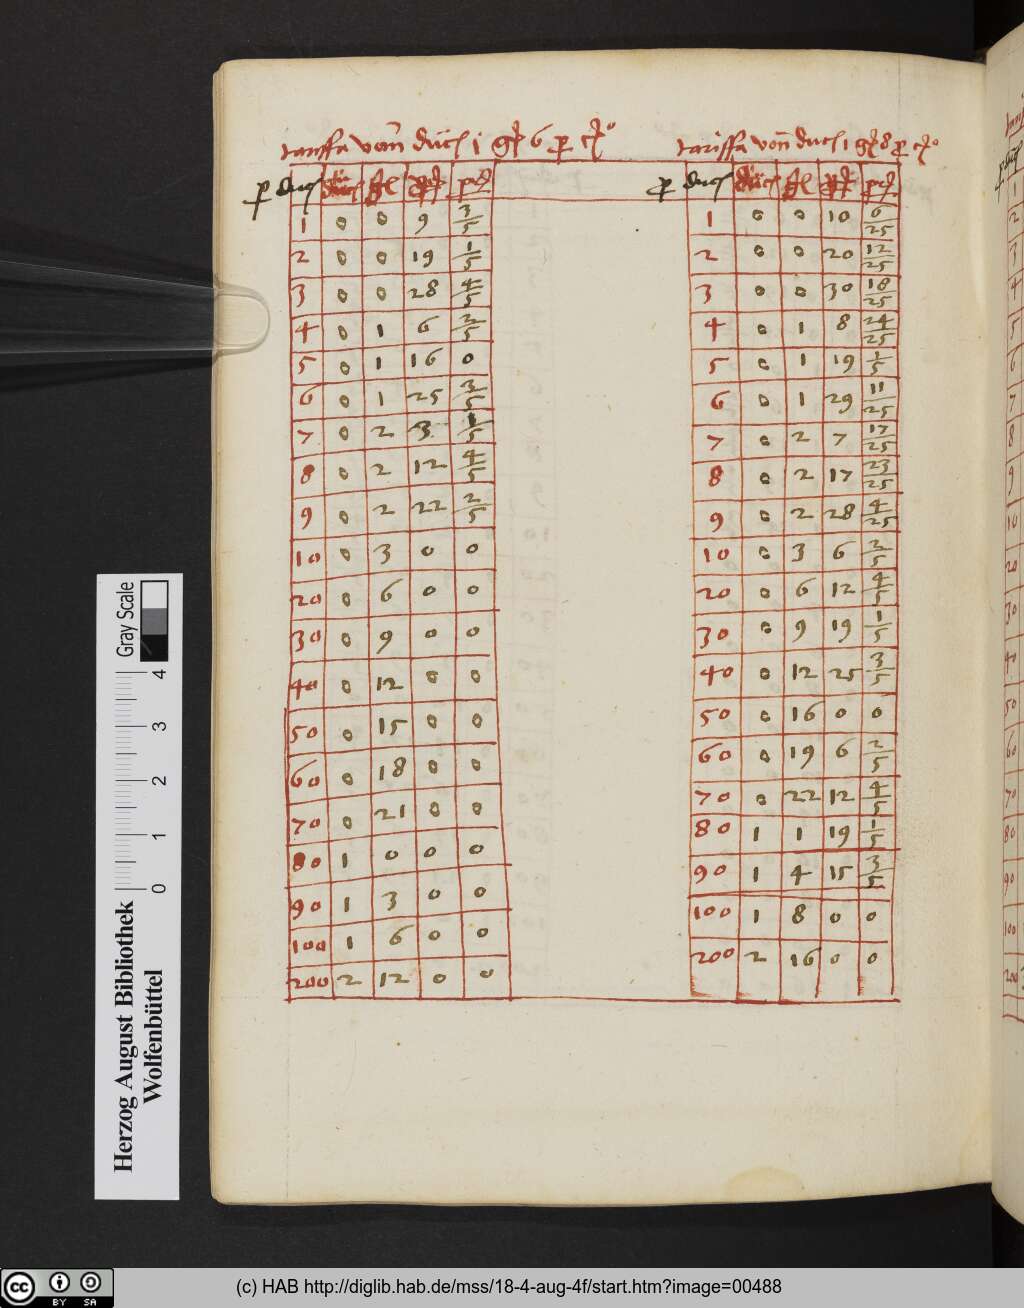 tariffa vom duc 1 g 6 p c°
p duc duc gl p
1 0 0 9 3/5
2 0 0 19 1/5
3 0 0 28 4/5
4 0 1 6 2/5
5 0 1 16 0
6 0 1 25 3/5
7 0 2 3 1/5
8 0 2 12 4/5
9 0 2 22 2/5
10 0 3 0 0
20 0 6 0 0
30 0 9 0 0
40 0 12 0 0
50 0 15 0 0
60 0 18 0 0
70 0 21 0 0
80 1 0 0 0
90 1 3 0 0
100 1 6 0 0
200 2 12 0 0
tariffa von duc 1 g 8 p c°
p duc duc gl p
1 0 0 10 6/25
2 0 0 20 12/25
3 0 0 30 18/25
4 0 1 8 24/25
5 0 1 19 1/5
6 0 1 29 11/25
7 0 2 7 17/25
8 0 2 17 23/25
9 0 2 28 4/25
10 0 3 6 2/5
20 0 6 12 4/5
30 0 9 19 1/5
40 0 12 25 3/5
50 0 16 0 0
60 0 19 6 2/5
70 0 22 12 4/5
80 1 1 19 1/5
90 1 4 15 3/5
100 1 8 0 0
200 2 16 0 0
Gray Scale
0 1 2 3 4
Herzog August Bibliothek
Wolfenbüttel
cc BY SA
(c) HAB http://diglib.hab.de/mss/18-4-aug-4f/start.htm?image=00488